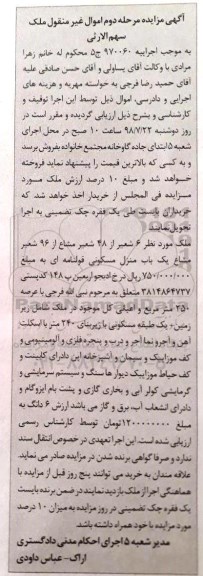 آگهی مزایده مرحله دوم اموال غیر منقول ملک
سهم الارثی
به موجب اجراییه ۹۷۰۰۶۰ ج۵ محکوم له خانم زهرا
مرادی با وکالت آقای یساولی و آقای حسن صادقی علیه
آقای حمید رضا فرجی به خواسته مهریه و هزینه های
اجرایی و دادرسی، اموال ذیل توسط این اجرا توقیف و
کارشناسی و بشرح ذیل ارزیابی گردیده و مقرر است در
روز دوشنبه ۹۸/۷/۲۲ ساعت ۱۰ صبح در محل اجرای
شعبه ۵ ابتدای جاده گاوخانه مجتمع خانواده بفروش برسد
و به کسی که بالاترین قیمت را پیشنهاد نماید فروخته
خواهد شد و مبلغ ۱۰ درصد ارزش ملک مورد
مزایده فی المجلس از خریدار اخذ خواهد شد. که
خریداران بایست طی یک فقره چک تضمینی به اجرا
تحویل نمایند
ملک مورد نظر ۶ شعیر از ۴۸ شعیر مشاع از ۹۶ شعیر
مشاع یک باب منزل مسکونی قولنامه ای به مبلغ
۷۵۰/۰۰۰/۰۰۰ ریال در خ ادبجو اربعین پ ۱۴۸ کدپستی
۳۸۱۴۸۶۴۷۳۷ متعلق به مرحوم نبی الله فرجی با عرصه
۲۵۰ متر مربع و اعیانی کل موجود در ملک شامل زیر
زمین+ یک طبقه مسکونی با زیربنای ۲۴۰ متر با اسکلت
آهن و آجر و نما آجر و درب و پنجره فلزی و آلومینیومی و
کف موزاییک و سیمان و آشپزخانه این دارای کابینت و
کف حیاط موزاییک دیوارها سنگ و سیستم سرمایشی و
گرمایشی کولر آبی و بخاری گازی و پشت بام ایزوگام و
دادرای انشعاب آب، برق و گاز می باشد ارزش ۶ دانگ به
مبلغ ۱۲۰۰۰۰۰۰۰۰ تومان توسط کارشناس رسمی
ارزیابی شده است. این اجرا تعهدی در خصوص انتقال سند
ندارد و صرفا گواهی برنده شدن در مزایده صادر می نماید.
علاقه مندان به خرید می توانند پنج روز قبل از مزایده با
هماهنگی اجرا از ملک بازدید نمایند در ضمن برنده بایست
یک فقره چک تضمینی در روز مزایده به میزان ۱۰ درصد
مورد مزایده با خود همراه داشته باشد.
مدیر شعبه ۵ اجرای احکام مدنی دادگستری
اراک- عباس داودی